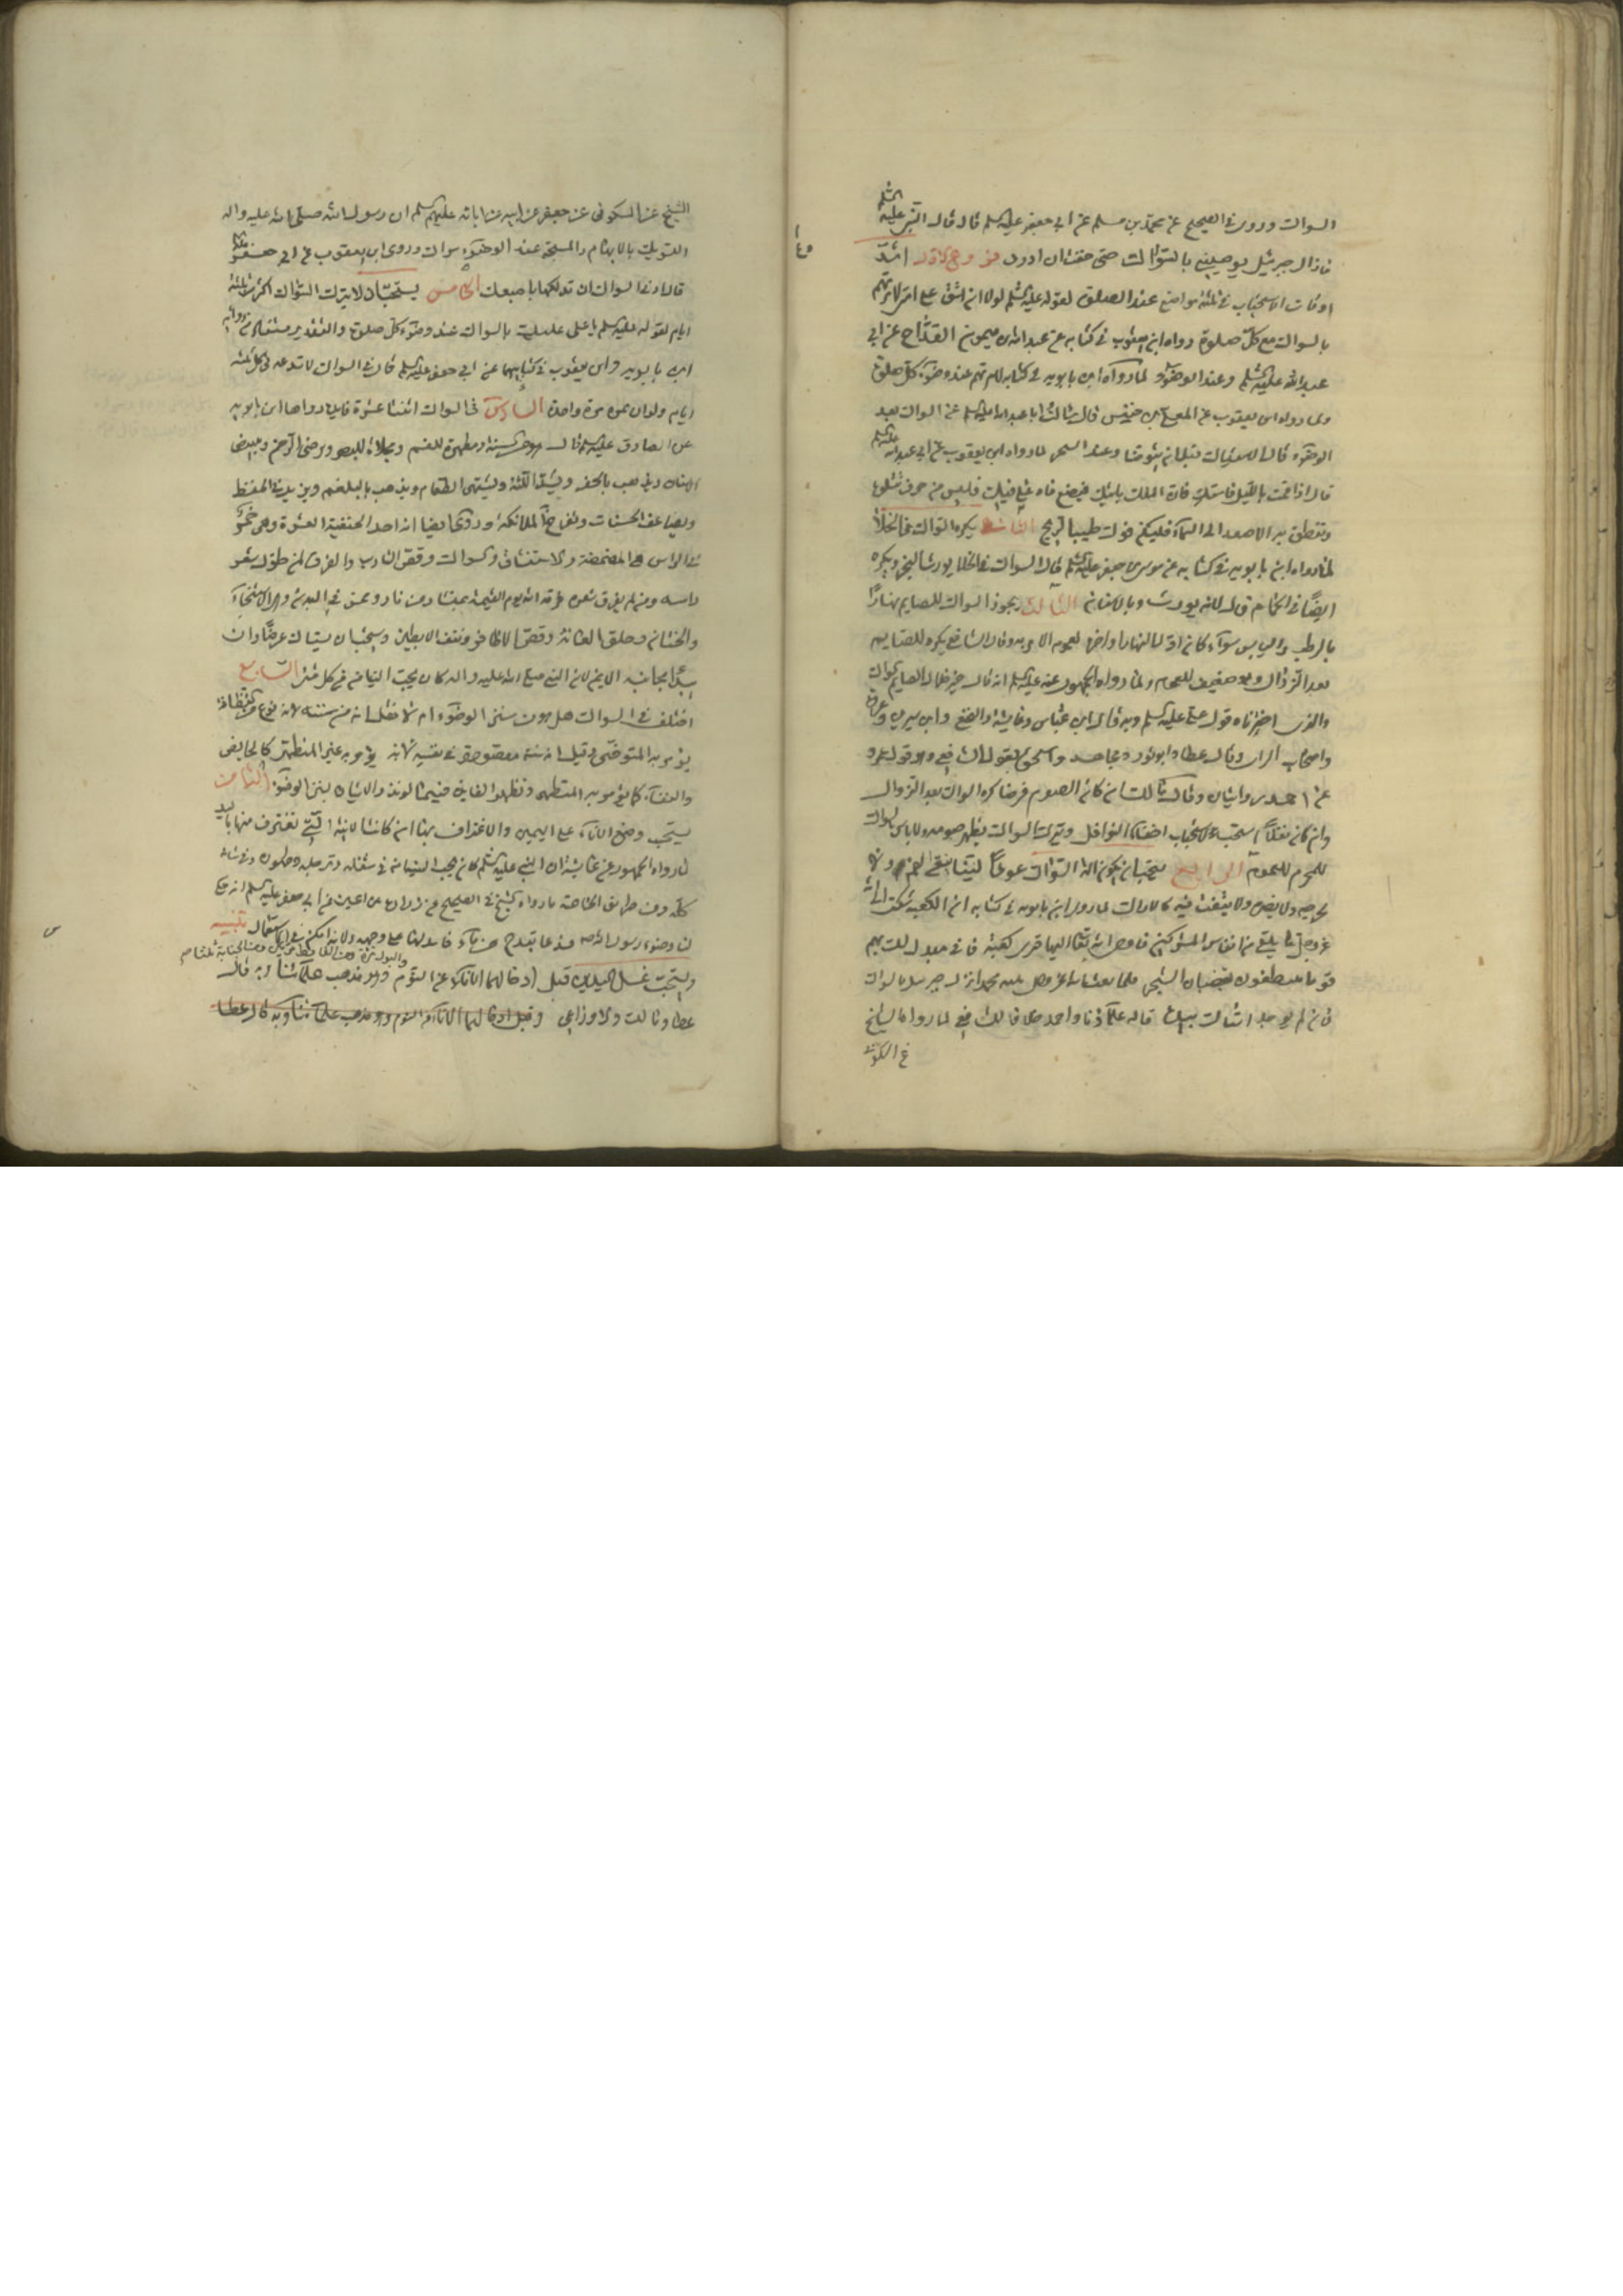 السواك وروى فى الصحيح عن محمد بن مسلم عن ابي جعفر عليه السلم قال قال النبى عليه السلم
مازال جبرئيل يوصينى بالسواك حتى خفت ان ادرد فروع الاول اشد
اوقات الاستحباب فى ثلثة مواضع عند الصلوة لقوله عليه السلم لولا ان اشق على امتى لامرتهم
بالسواك مع كل صلوة رواه ابن يعقوب فى كتابه عن عبد الله بن ميمون القداح عن ابي
عبد الله عليه السلم وعند الوضوء لما رواه ابن بابويه فى كتابه لامرتهم عند وضوء كل صلوة
ولما رواه ابن يعقوب عن المعلى بن خنيس قال سالت ابا عبد الله عليه السلم عن السواك بعد
الوضوء فقال الاستياك قبل ان يتوضا وعند السحر لما رواه ابن يعقوب عن ابي عبد الله عليه السلم
قال اذا قمت بالليل فاستك فان الملك ياتيك فيضع فاه على فيك فليس من حرف تتلوه
وتنطق به الا صعد الى السماء فليكن فوك طيب الريح الثانى يكره السواك فى الخلاء
لما رواه ابن بابويه فى كتابه عن موسى بن جعفر عليه السلم قال السواك فى الخلا يورث البخر ويكره
ايضا فى الحمام قال لانه يورث وباء الاسنان الثالث يجوز السواك للصايم نهارا
بالرطب واليابس سواء كان اول النهار او اخره لعموم الامر به وقال الشافعى يكره للصايم
بعد الزوال وهو ضعيف للعموم ولما رواه الجمهور عنه عليه السلم انه قال خير خلال الصايم السواك
والذى اخترناه قول على عليه السلم وبه قال ابن عباس وعايشة والنخعى وابن سيرين وعروة
واصحاب الراى وقال عطا وابو ثور ومجاهد واسحق بقول الشافعى وهو قول عمرو
عن احمد روايتان وقال مالك ان كان الصوم فرضا كره السواك بعد الزوال
وان كان نفلا استحب لاستحباب اخفاء النوافل وترك السواك يظهر صومه ولا باس بالسواك
للمحرم للعموم الرابع يستحب ان يكون الة السواك عودا لينا ينقى الفم ولا
يجرحه ولا يضره ولا يتفتت فيه كالاراك لما رواه ابن بابويه فى كتابه ان الكعبة شكت الى الله
عز وجل ما يلقى من انفاس المشركين فاوحى الله تعالى اليها قرى كعبة فانى مبدلك بهم
قوما يتنظفون بقضبان الشجر فلما بعث الله عز وجل نبيه محمدا نزل جبرئيل بالسواك
فان لم يوجد استاك بيده قاله علماؤنا واحمد خلافا للشافعى لما رواه الشيخ
عن السكونى
الشيخ عن السكونى عن جعفر عن ابيه عن ابائه عليهم السلم ان رسول الله صلى الله عليه واله
التسويك بالابهام والمسبحة عند الوضوء سواك وروى ابن يعقوب عن ابي جعفر عليه السلم
قال ادنى السواك ان تدلكها باصبعك الخامس يستحب ان لا يترك السواك اكثر من ثلثة
ايام لقوله عليه السلم يا على عليك بالسواك عند وضوء كل صلوة
ابن بابويه وابن يعقوب فى كتابيهما عن ابي جعفر عليه السلم قال فى السواك لا تدعه فى كل ثلثة
ايام ولو ان تمره مرة واحدة السادس فى السواك اثنتا عشرة فايدة رواها ابن بابويه
عن الصادق عليه السلم قال هو من السنة ومطهرة للفم ومجلاة للبصر ويرضى الرحمن ويبيض
الاسنان ويذهب بالحفر ويشد اللثة ويشهى الطعام ويذهب بالبلغم ويزيد فى الحفظ
ويضاعف الحسنات وتفرح به الملائكة وروى ايضا انه احد الحنيفية العشرة وهى خمس
فى الراس هى المضمضة والاستنشاق والسواك وقص الشارب والفرق لمن طول شعر
راسه ومن لم يفرق شعره فرقه الله يوم القيمة بمنشار من نار وخمس فى البدن وهى الاستنجاء
والختان وحلق العانة وقص الاظافر ونتف الابطين ويستحب ان يستاك عرضا وان
يبدا بجانبه الايمن لان النبى صلى الله عليه واله كان يحب التيامن فى كل شئ السابع
اختلف فى السواك هل هو من سنن الوضوء ام لا فقيل انه من سننه لانه نوع من النظافة
يؤمر به المتوضى وقيل انه سنة مقصودة فى نفسه لانه يؤمر به غير المتطهر كالحايض
والنفساء كما يؤمر به المتطهر وتظهر الفايدة فيمن نذر الاتيان بسنن الوضوء الثامن
يستحب وضع الاناء على اليمين والاغتراف بها ان كانت الانية التى تغترف منها باليد
لما رواه الجمهور عن عايشة ان النبى عليه السلم كان يحب التيامن فى تنعله وترجله وطهوره وفى شانه
كله ومن طريق الخاصة ما رواه الشيخ فى الصحيح عن زرارة بن اعين عن ابي جعفر عليه السلم انه حكى
لنا وضوء رسول الله ص فدعا بقدح من ماء فادخل يده ولانه امكن فى الاستعمال تنبيه
ويستحب غسل اليدين قبل ادخالهما الاناء من النوم والبول مرة ومن الغايط مرتين ومن الجنابة ثلثا وهو مذهب علمائنا وبه قال
عطا ومالك والاوزاعى وقبل ادخالهما الاناء من النوم وهو مذهب علمائنا وبه قال عطا